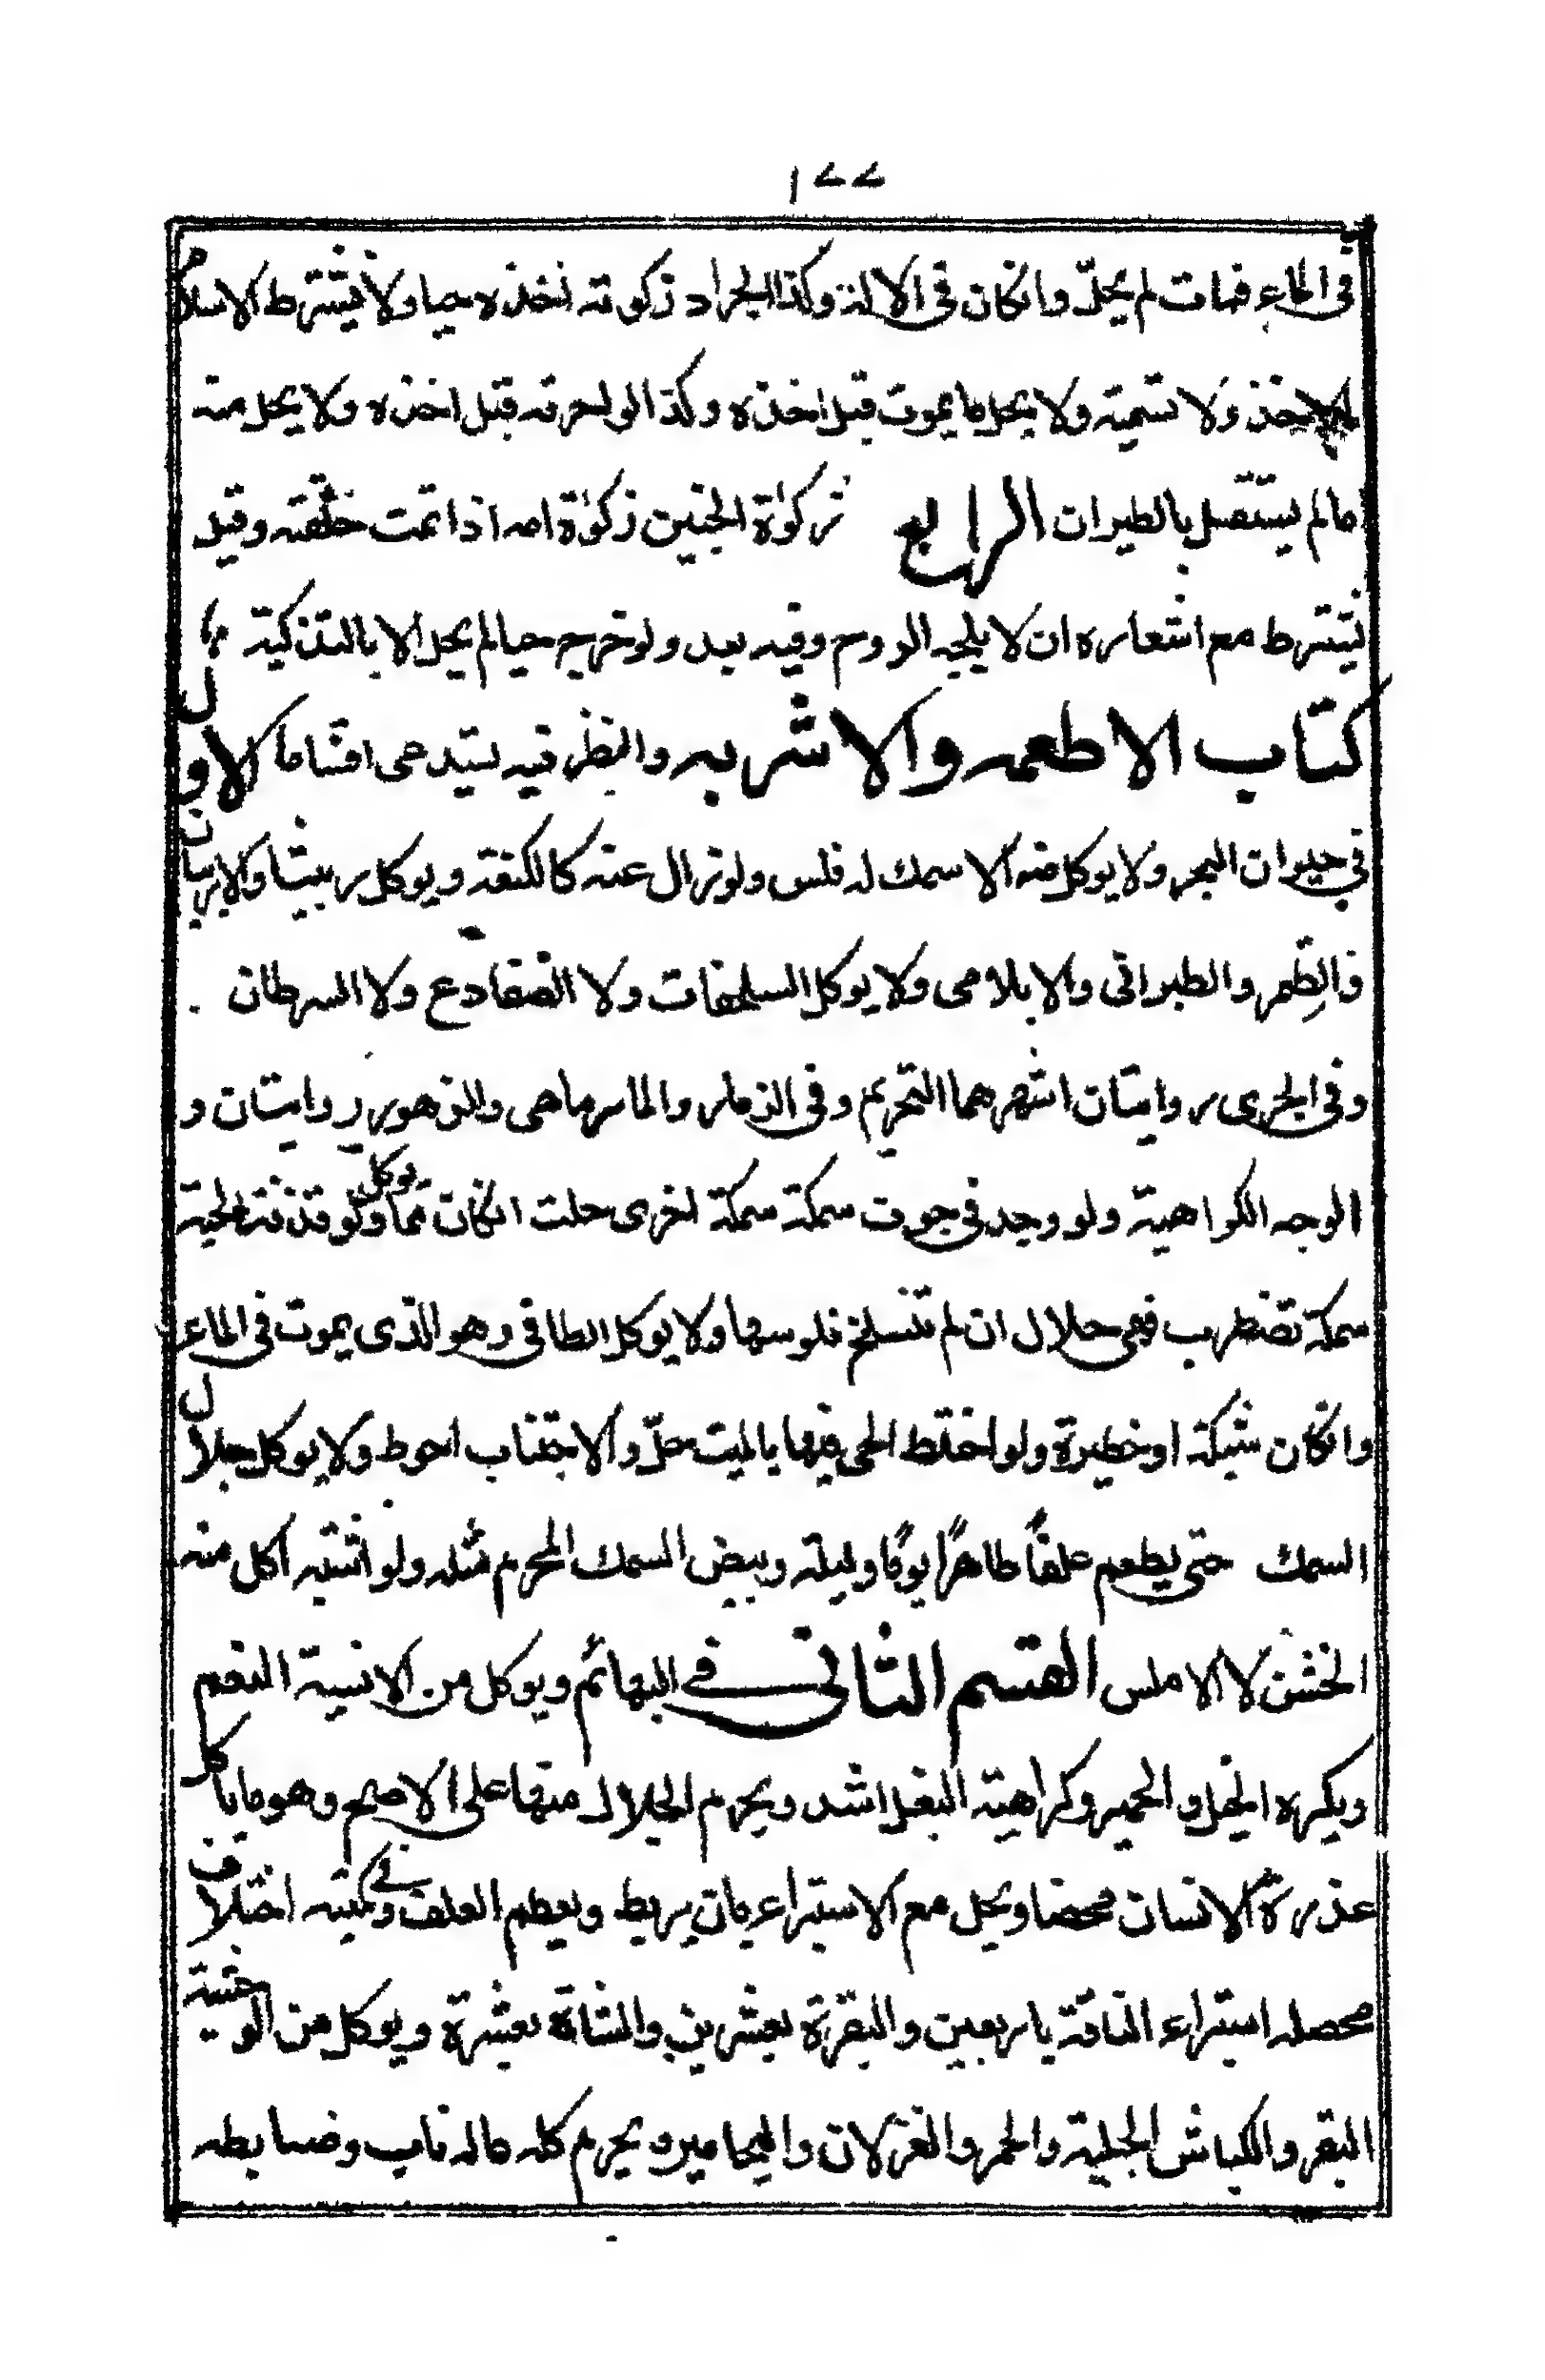 ١٧٧
فى الماء فمات لم يحلّ وانكان فى الالة وكذا الجراد زكوته اخذه حيا ولا يشترط الاسلام
للاخذ ولا تسمية ولا يحل ما يموت قبل اخذه وكذا لو احرقه قبل اخذه ولا يحل منه
ما لم يستقل بالطيران الرابع زكوٰة الجنين زكوٰة امه اذا تمت خلقته وقيل
يشترط مع اشعاره ان لا يلجه الروح وفيه بعد ولو خرج حيا لم يحل الا بالتذكية
كتاب الاطعمه والاشربه والنظر فيه يستدعى اقساما الاول
فى حيوان البحر ولا يوكل منه الا سمك له فلس ولو زال عنه كالكنعة ويوكل ربيثا والاربيان
والطمر والطبرانى والابلامى ولا يوكل السلحفات ولا الضفادع ولا السرطان
وفى الجرى روايتان اشهرهما التحريم وفى الزمار والمارماهى والزهو روايتان و
الوجه الكراهية ولو وجد فى جوف سمكة سمكة اخرى حلت انكانت مما يوكل ولو قذفت الحية
سمكة تضطرب فهى حلال ان لم تنسلخ فلوسها ولا يوكل الطافى وهو الذى يموت فى الماء
وانكان شبكة او خطيرة ولو اختلط الحى فيها بالميت حلّ والاجتناب احوط ولا يوكل جلال
السمك حتى يطعم علفًا طاهرًا يومًا وليلة وبيض السمك المحرم مثله ولو اشتبه اكل منه
الخشن لا الاملس القسم الثانى فى البهائم ويوكل من الانسية النعم
ويكره الخيل والحمير وكراهية البغل اشد ويحرم الجلال منها على الاصح وهو ما ياكل
عذرة الانسان محضا ويحل مع الاستبراء بان يربط ويطعم العلف وفى كميته اختلاف
محصله استبراء الناقة باربعين والبقرة بعشرين والشاة بعشرة ويوكل من الوحشية
البقر والكباش الجبلية والحمر والغزلان واليحامير ويحرم كله ماله ناب وضابطه